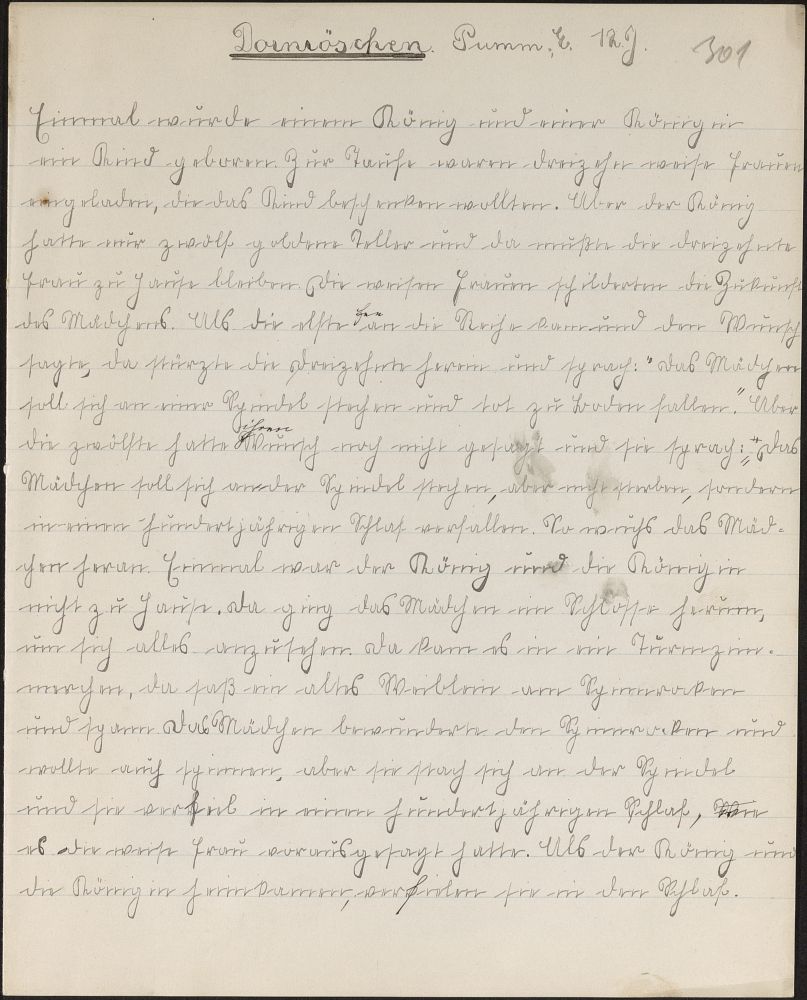 Dornröschen. Pumm. E. 12 J. 301
Einmal wurde einem König und einer Königin
ein Kind geboren. Zur Taufe waren dreizehn weise Frauen
eingeladen, die das Kind beschenken wollten. Aber der König
hatte nur zwölf goldene Teller und da mußte die dreizehnte
Frau zu Hause bleiben. Die weisen Frauen schilderten die Zukunft
des Mädchens. Als die elfte an die Reihe kam und den Wunsch
sagte, da stürzte die dreizehnte herein und sprach: "Das Mädchen
soll sich an einer Spindel stechen und tot zu Boden fallen." Aber
die zwölfte hatte ihren Wunsch noch nicht gesagt und sie sprach: "Das
Mädchen soll sich an der Spindel stechen, aber nicht sterben, sondern
in einen hundertjährigen Schlaf verfallen. So wuchs das Mäd-
chen heran. Einmal war der König und die Königin
nicht zu Hause. Da ging das Mädchen im Schlosse herum,
um sich alles anzusehen. Da kam es in ein Turmzim-
merchen, da saß ein altes Weiblein am Spinnrocken
und spann. Das Mädchen bewunderte den Spinnrocken und
wollte auch spinnen, aber sie stach sich an der Spindel
und sie verfiel in einen hundertjährigen Schlaf, wie
es die weise Frau vorausgesagt hatte. Als der König und
die Königin heimkamen, verfielen sie in den Schlaf.